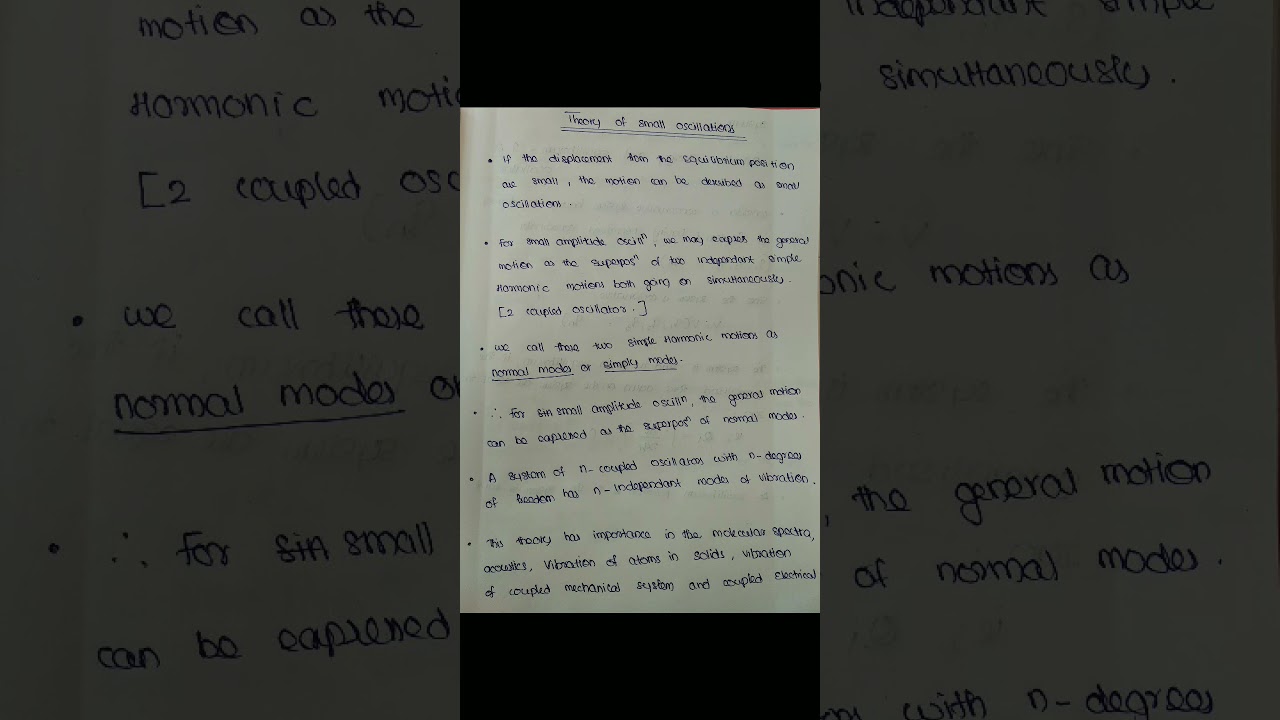 Theory of small oscillations
• if the displacement from the equilibrium position
are small, the motion can be described as small
oscillations.
• For small amplitude oscillⁿ, we may express the general
motion as the superposⁿ of two independant simple
Harmonic motions both going on simultaneously.
[2 coupled oscillator.]
• we call these two simple Harmonic motions as
normal modes or simply modes.
• ∴ for sin small amplitude oscillⁿ, the general motion
can be expressed as the superposⁿ of normal modes.
• A system of n-coupled oscillators with n-degrees
of freedom has n-independant modes of vibration.
• This theory has importance in the molecular spectra,
acoustics, vibration of atoms in solids, vibration
of coupled mechanical system and coupled electrical